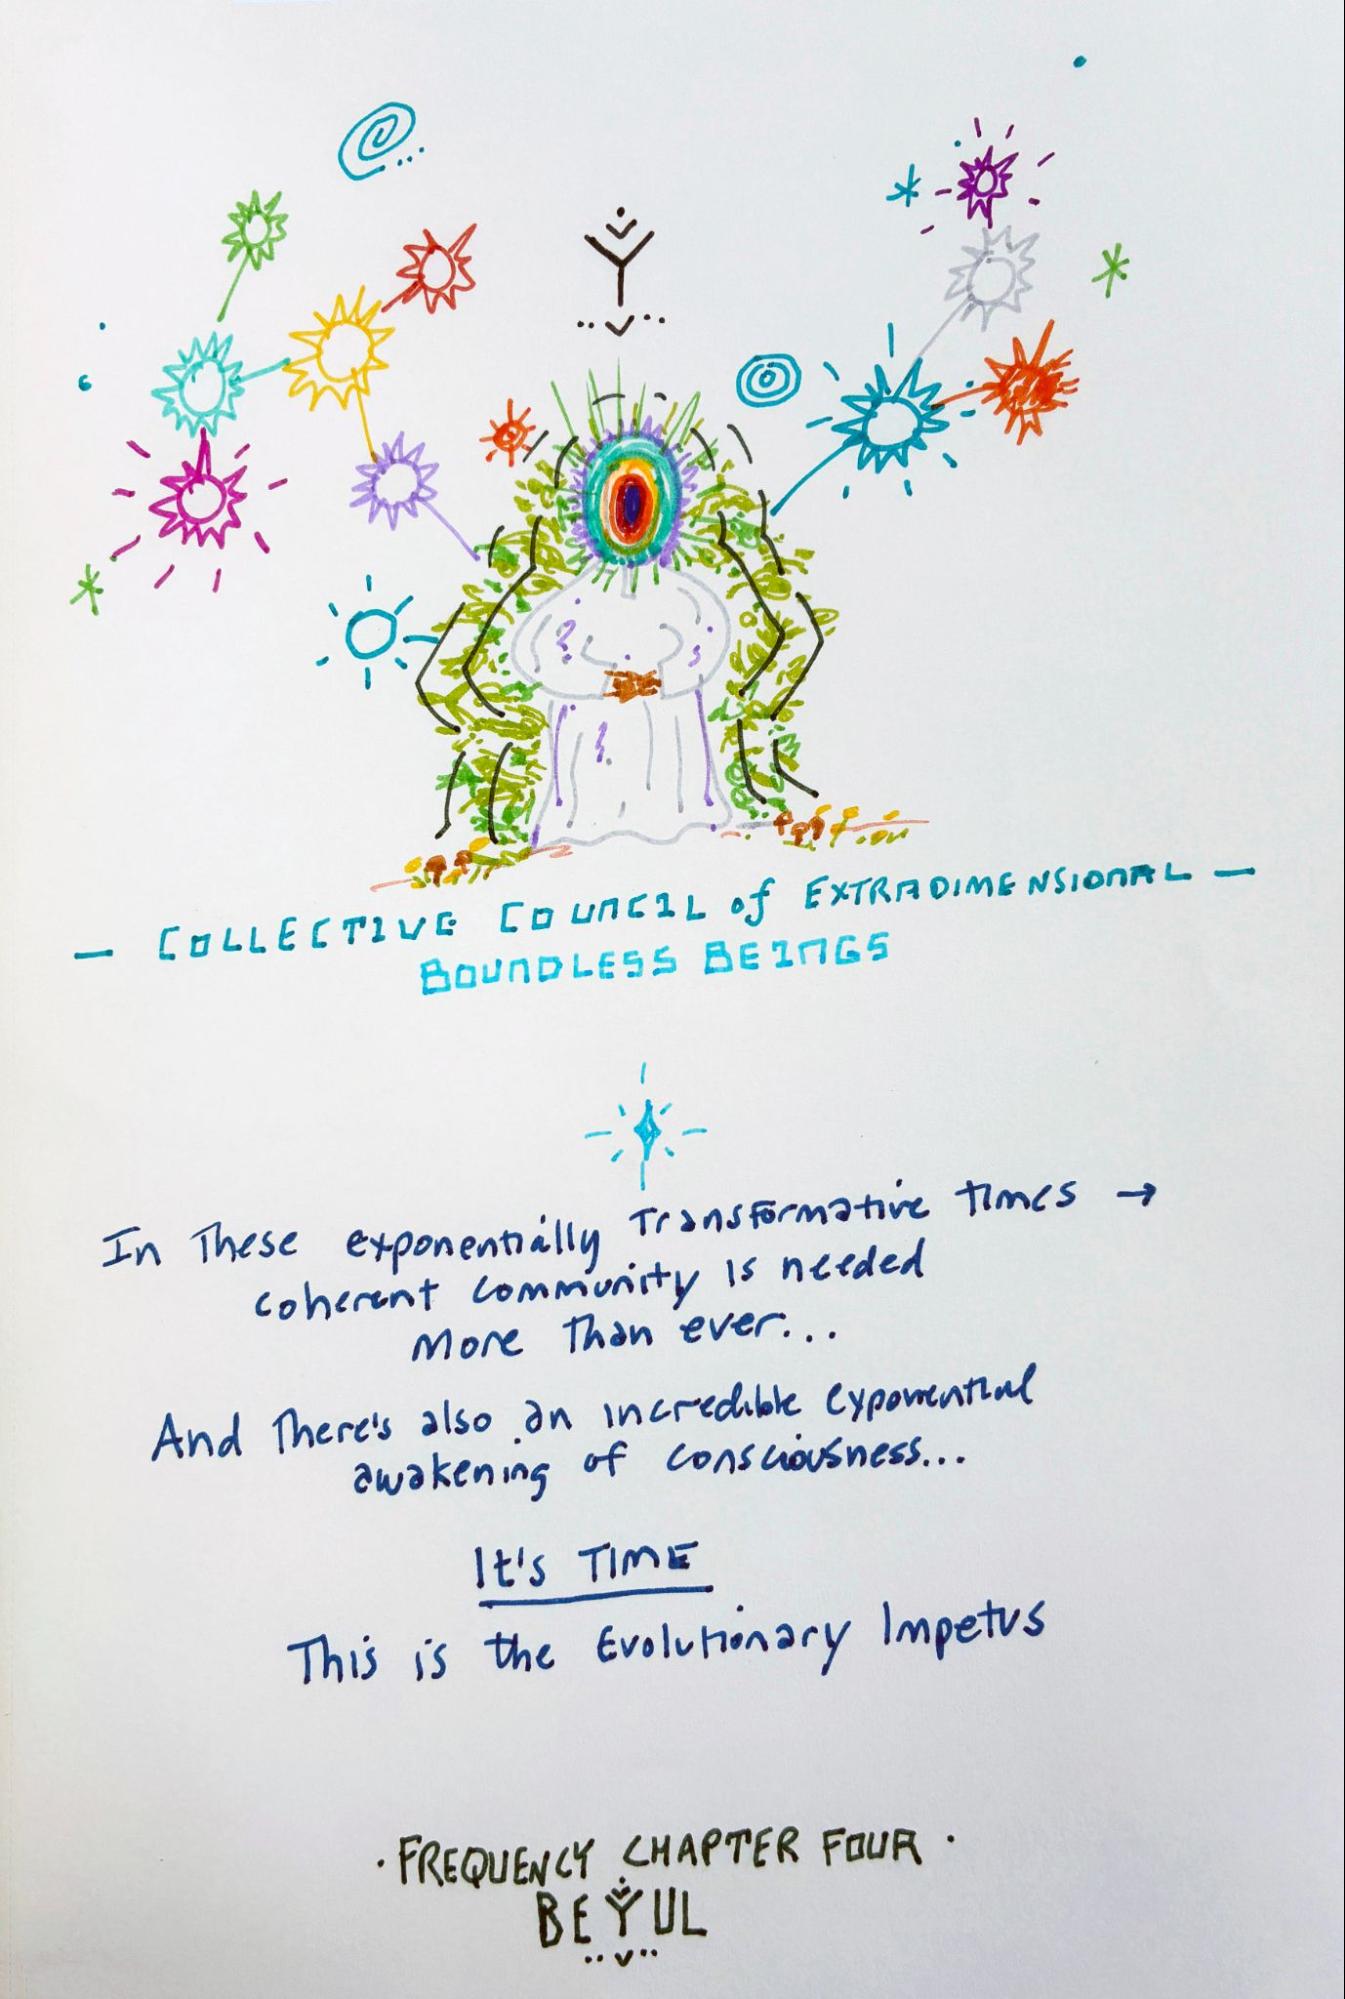 — COLLECTIVE COUNCIL of EXTRADIMENSIONAL —
BOUNDLESS BEINGS
In These exponentially Transformative Times →
coherent community is needed
more Than ever...
And There's also an incredible exponential
awakening of consciousness...
It's TIME
This is the Evolutionary Impetus
· FREQUENCY CHAPTER FOUR ·
BEYUL